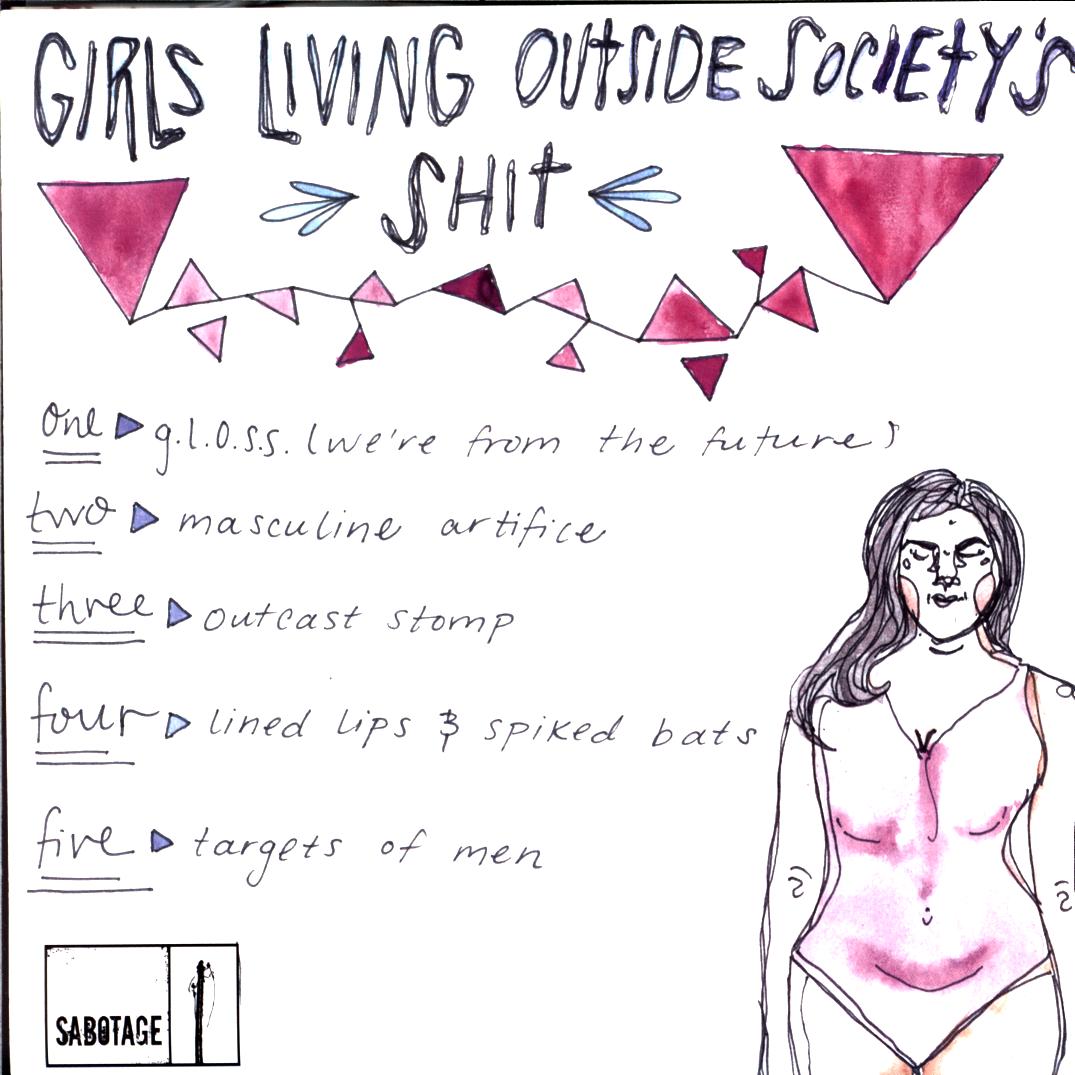 GIRLS LIVING OUTSIDE SOCIETY'S
SHIT
one g.l.o.s.s. (we're from the future)
two masculine artifice
three outcast stomp
four lined lips & spiked bats
five targets of men
SABOTAGE